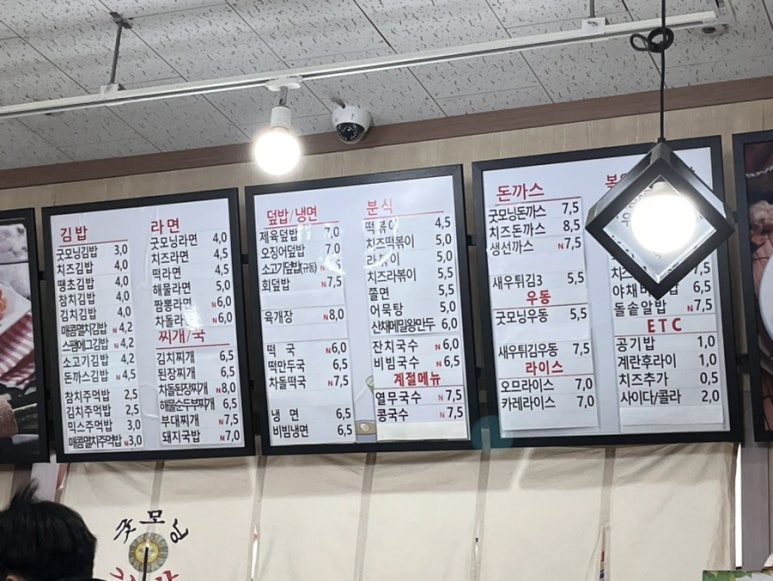 김밥
굿모닝김밥 3,0
치즈김밥 4,0
땡초김밥 4,0
참치김밥 4,0
김치김밥 4,0
매콤멸치김밥 N4,2
스팸에그김밥 N4,2
소고기김밥 4,2
돈까스김밥 N4,5
참치주먹밥 2,5
김치주먹밥 2,5
믹스주먹밥 2,5
매콤멸치주먹밥 N3,0
라면
굿모닝라면 4,0
치즈라면 4,5
떡라면 4,5
해물라면 5,0
짬뽕라면 N6,0
차돌라면 N6,0
찌개/국
김치찌개 6,5
된장찌개 6,5
차돌된장찌개 N8,0
해물순두부찌개 6,5
부대찌개 N7,5
돼지국밥 N7,0
덮밥/냉면
제육덮밥 7,0
오징어덮밥 7,0
소고기덮밥(규동)
회덮밥 N7,5
육개장 N8,0
떡국 N6,0
떡만두국 6,5
차돌떡국 N7,5
냉면 6,5
비빔냉면 6,5
분식
떡볶이 4,5
치즈떡볶이 5,0
라볶이 5,0
치즈라볶이 5,5
쫄면 5,5
어묵탕 5,0
산채메밀왕만두 6,0
잔치국수 N6,0
비빔국수 N6,5
계절메뉴
열무국수 N7,5
콩국수 N7,5
돈까스
굿모닝돈까스 7,5
치즈돈까스 8,5
생선까스 N7,5
새우튀김3 5,5
우동
굿모닝우동 5,5
새우튀김우동 7,5
라이스
오므라이스 7,0
카레라이스 7,0
7,5
6,5
돌솥알밥 N7,5
ETC
공기밥 1,0
계란후라이 1,0
치즈추가 0,5
사이다/콜라 2,0
굿모닝